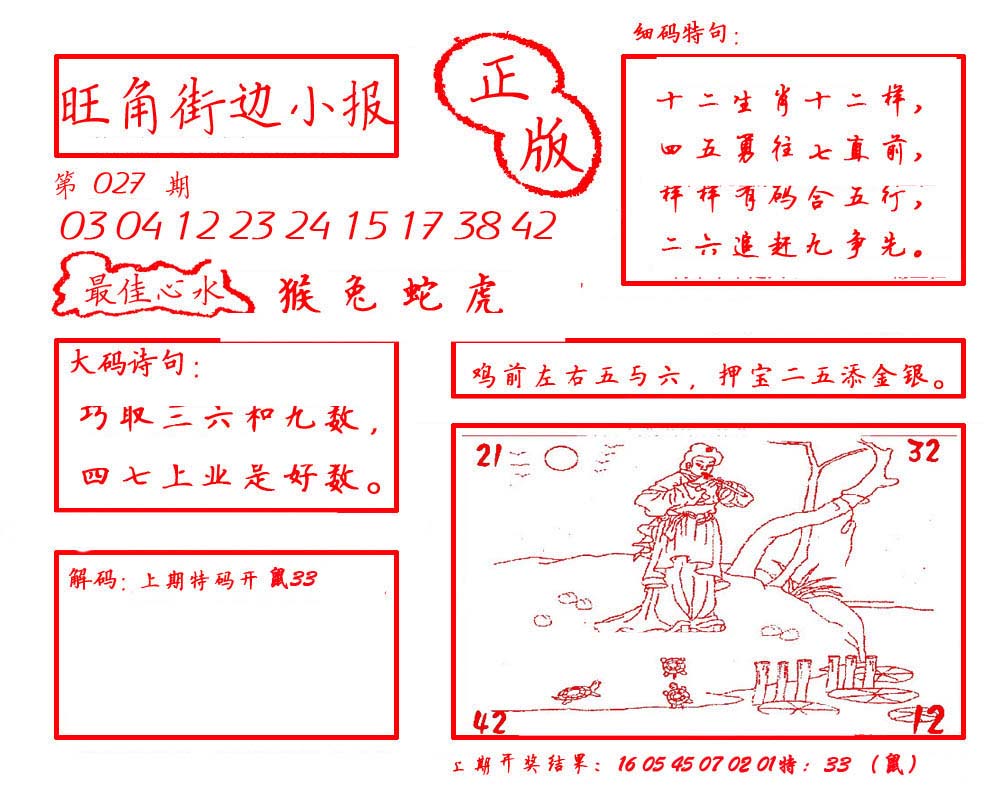 细码特句：
旺角街边小报
正版
十二生肖十二样，
四五勇往七直前，
样样有码合五行，
二六追赶九争先。
第 027 期
03 04 12 23 24 15 17 38 42
最佳心水 猴兔蛇虎
大码诗句：
巧取三六和九数，
四七上业是好数。
鸡前左右五与六，押宝二五添金银。
21
32
42
12
解码：上期特码开鼠33
上期开奖结果：16 05 45 07 02 01特：33（鼠）